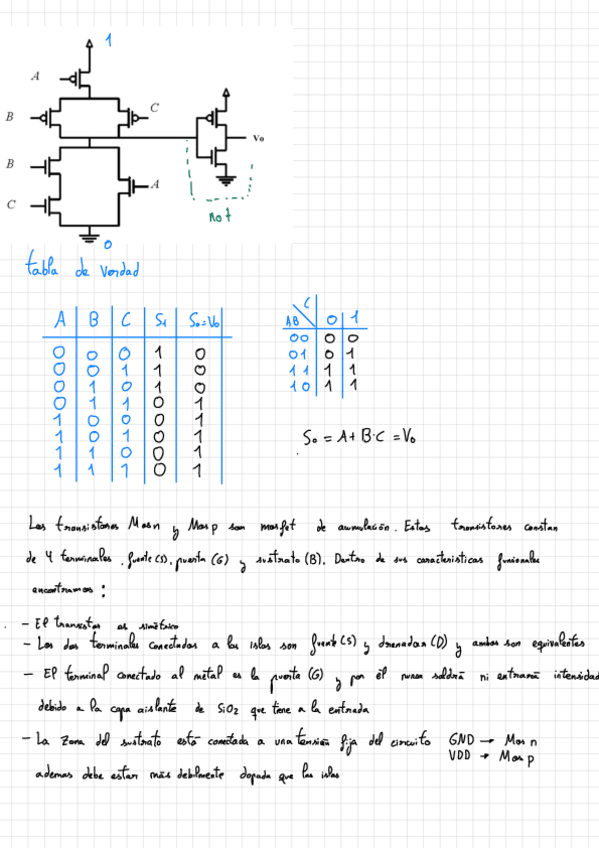 1
A
B
C
B
A
C
Vo
not
0
tabla de verdad
A B C S₁ S₀=V₀
0 0 0 1 0
0 0 1 1 0
0 1 0 1 0
0 1 1 0 1
1 0 0 0 1
1 0 1 0 1
1 1 0 0 1
1 1 1 0 1
C
AB 0 1
00 0 0
01 0 1
11 1 1
10 1 1
S₀ = A + B·C = V₀
Los transistores Mos n y Mos p son mosfet de acumulación. Estos transistores constan
de 4 terminales, fuente (S), puerta (G) y sustrato (B). Dentro de sus características funcionales
encontramos:
- El transistor es simétrico
- Los dos terminales conectados a las islas son fuente (S) y drenador (D) y ambos son equivalentes
- El terminal conectado al metal es la puerta (G) y por él nunca saldrá ni entrará intensidad
debido a la capa aislante de SiO2 que tiene a la entrada
- La zona del sustrato está conectada a una tensión fija del circuito GND → Mos n
VDD → Mos p
ademas debe estar más debilmente dopada que las islas